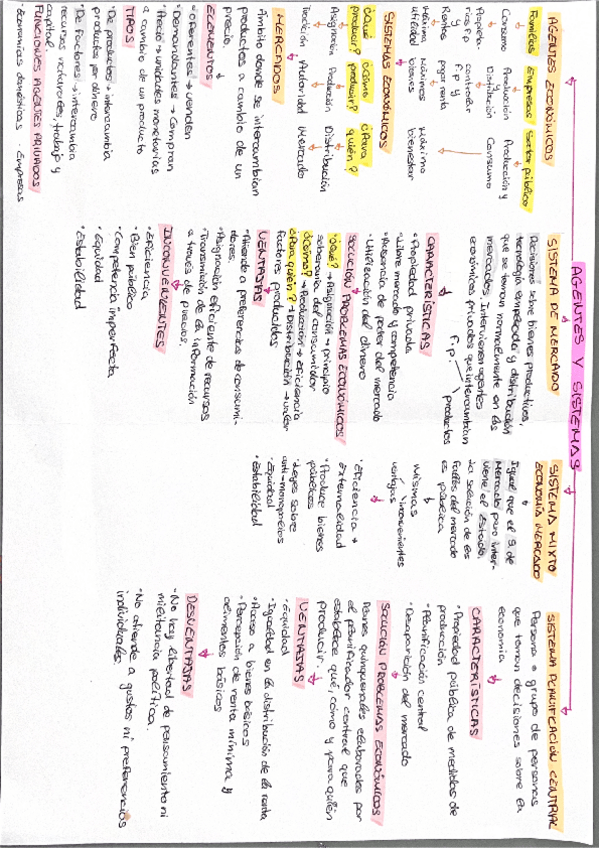 AGENTES Y SISTEMAS
AGENTES ECONÓMICOS
Familias Empresas Sector público
Consumo Producción y Distribución Producción y Consumo
Propieta-
rias f.p
y
Rentas
controlar
f.p y
pagar renta
Máxima
utilidad
Máximos
bienes
Máximo
bienestar
SISTEMAS ECONÓMICOS
¿Qué
producir?
¿Cómo
producir?
¿Para
quién?
Asignación Producción Distribución
Tradición Autoridad Mercado
MERCADOS
Ámbito donde se intercambian
productos a cambio de un
precio.
ELEMENTOS
·Oferentes → venden
·Demandantes → Compran
·Precio → unidades monetarias
a cambio de un producto
TIPOS
·De productos → intercambia
productos por dinero
·De factores → intercambia
recursos naturales, trabajo y
capital.
FUNCIONES AGENTES PRIVADOS
·Economías domésticas ·Empresas
SISTEMA DE MERCADO
Decisiones sobre bienes productivos,
tecnología empleada y distribución
que se toman normalmente en los
mercados, intervienen agentes
económicos privados que intercambian
f.p. productos
CARACTERÍSTICAS
·Propiedad privada
·Libre mercado y competencia
·Ausencia de poder del mercado
·Utilización del dinero
SOLUCIÓN PROBLEMAS ECONÓMICOS
·¿Qué? → Asignación → principio
soberanía del consumidor
·¿Cómo? → Producción → Eficiencia
·¿Para quién? → Distribución → valor
factores producidos
VENTAJAS
·Atiende a preferencias de consumi-
dores.
·Asignación eficiente de recursos
·Transmisión de la información
a través de precios.
INCONVENIENTES
·Eficiencia
·Bien público
·Competencia imperfecta
·Equidad
·Estabilidad
SISTEMA MIXTO
ECONOMÍA MERCADO
Igual que el S. de
Mercado pero inter-
viene el Estado.
La solución de los
fallos del mercado
es pública
Mismas
ventajas inconvenientes
·Eficiencia +
externalidad
·Produce bienes
públicos
·Leyes sobre
anti-monopolios
·Equidad
·Estabilidad
SISTEMA PLANIFICACIÓN CENTRAL
Persona o grupo de personas
que toman decisiones sobre la
economía
CARACTERÍSTICAS
·Propiedad pública de medidas de
producción
·Planificación central
·Desaparición del mercado
SOLUCIÓN PROBLEMAS ECONÓMICOS
Planes quinquenales elaborados por
el planificador central que
establece qué, cómo y para quién
producir.
VENTAJAS
·Equidad
·Igualdad en la distribución de la renta
·Acceso a bienes básicos
·Percepción de renta mínima y
alimentos básicos
DESVENTAJAS
·No hay libertad de pensamiento ni
militancia política.
·No atiende a gustos ni preferencias
individuales.